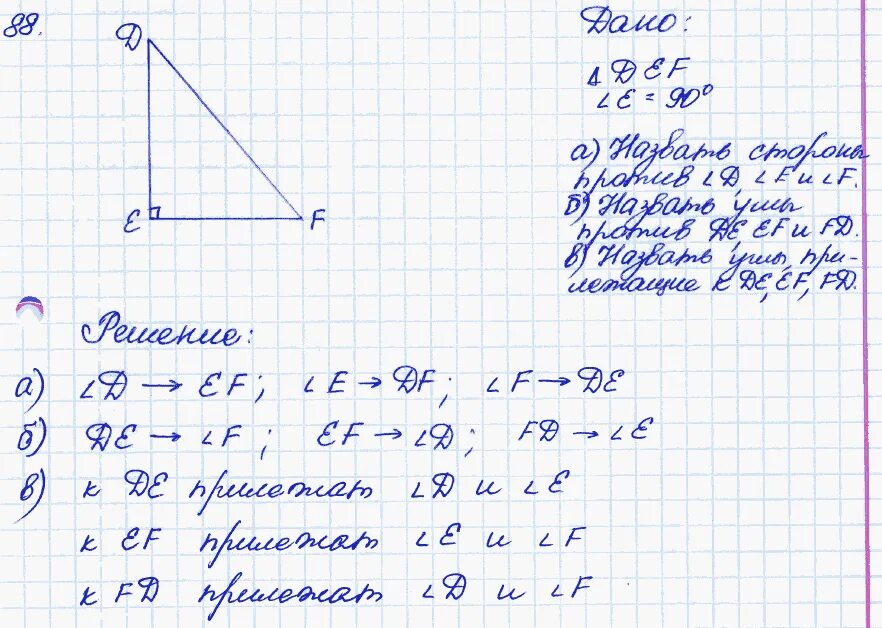 88.
D
E
F
Дано:
Δ DEF
∠E = 90°
а) Назвать стороны
против ∠D, ∠E и ∠F.
б) Назвать углы
против DE, EF и FD.
в) Назвать углы, при-
лежащие к DE, EF, FD.
Решение:
а) ∠D → EF; ∠E → DF; ∠F → DE
б) DE → ∠F; EF → ∠D; FD → ∠E
в) к DE прилежат ∠D и ∠E
к EF прилежат ∠E и ∠F
к FD прилежат ∠D и ∠F